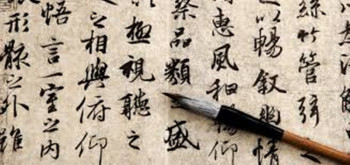 絲竹管弦之
以暢敘幽情
惠風和暢仰
察品類盛
以極視聽之
之相與俯仰
悟言一室之內
形骸之外雖